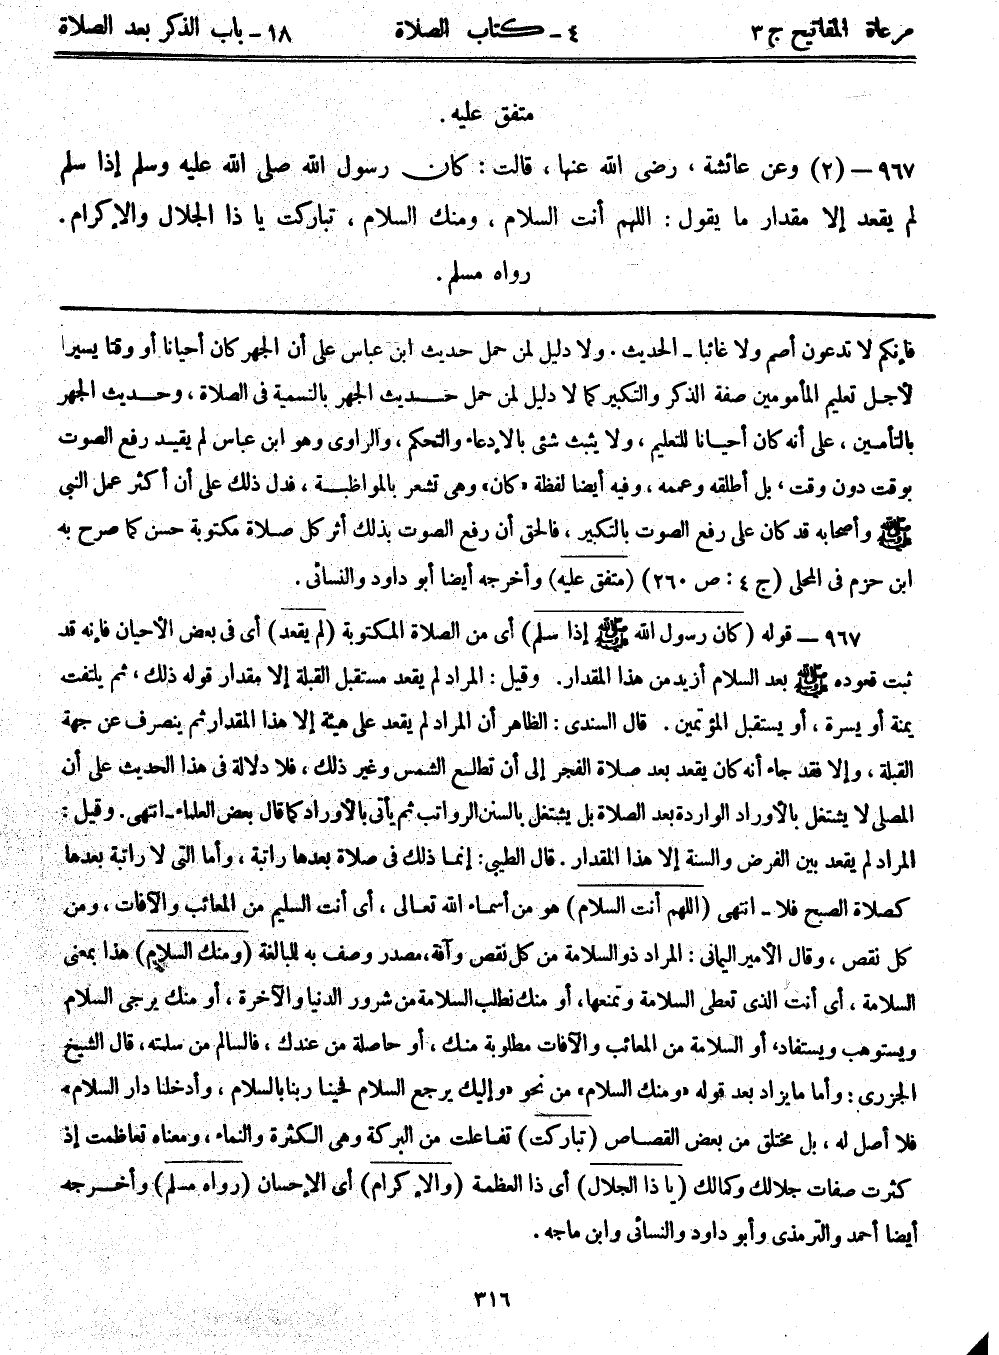 مرعاة المفاتيح ج ٣ ٤ - كتاب الصلاة ١٨ - باب الذكر بعد الصلاة
متفق عليه .
٩٦٧ – (٢) وعن عائشة ، رضى الله عنها ، قالت : كان رسول الله صلى الله عليه وسلم إذا سلم
لم يقعد إلا مقدار ما يقول : اللهم أنت السلام ، ومنك السلام ، تباركت يا ذا الجلال والإكرام .
رواه مسلم .
فإنكم لا تدعون أصم ولا غائبا - الحديث . ولا دليل لمن حمل حديث ابن عباس على أن الجهر كان أحيانا أو وقتا يسيرا
لأجل تعليم المأمومين صفة الذكر والتكبير كما لا دليل لمن حمل حديث الجهر بالتسمية فى الصلاة ، وحديث الجهر
بالتأمين ، على أنه كان أحيانا للتعليم ، ولا يثبت شئى بالإدعاء والتحكم ، والراوى وهو ابن عباس لم يقيد رفع الصوت
بوقت دون وقت ، بل أطلقه وعممه ، وفيه أيضا لفظة «كان» وهى تشعر بالمواظبة ، فدل ذلك على أن أكثر عمل النبي
ﷺ وأصحابه قد كان على رفع الصوت بالتكبير ، فالحق أن رفع الصوت بذلك أثر كل صلاة مكتوبة حسن كما صرح به
ابن حزم فى المحلى (ج ٤ : ص ٢٦٠) (متفق عليه) وأخرجه أيضا أبو داود والنسائى .
٩٦٧ – قوله (كان رسول الله ﷺ إذا سلم) أى من الصلاة المكتوبة (لم يقعد) أى فى بعض الأحيان فإنه قد
ثبت قعوده ﷺ بعد السلام أزيد من هذا المقدار. وقيل : المراد لم يقعد مستقبل القبلة إلا مقدار قوله ذلك ، ثم يلتفت
يمنة أو يسرة ، أو يستقبل المؤتمين . قال السندى : الظاهر أن المراد لم يقعد على هيئة إلا هذا المقدار ثم ينصرف عن جهة
القبلة ، وإلا فقد جاء أنه كان يقعد بعد صلاة الفجر إلى أن تطلع الشمس وغير ذلك ، فلا دلالة فى هذا الحديث على أن
المصلى لا يشتغل بالأوراد الواردة بعد الصلاة بل يشتغل بالسنن الرواتب ثم يأتى بالأوراد كما قال بعض العلماء - انتهى . وقيل :
المراد لم يقعد بين الفرض والسنة إلا هذا المقدار . قال الطيبى : إنما ذلك فى صلاة بعدها راتبة ، وأما التى لا راتبة بعدها
كصلاة الصبح فلا - انتهى (اللهم أنت السلام) هو من أسماء الله تعالى ، أى أنت السليم من المعائب والآفات ، ومن
كل نقص ، وقال الأمير اليمانى : المراد ذو السلامة من كل نقص وآفة، مصدر وصف به للمبالغة (ومنك السلام) هذا بمعنى
السلامة ، أى أنت الذى تعطى السلامة وتمنعها، أو منك نطلب السلامة من شرور الدنيا والآخرة ، أو منك يرجى السلام
ويستوهب ويستفاد، أو السلامة من المعائب والآفات مطلوبة منك ، أو حاصلة من عندك ، فالسالم من سلمته ، قال الشيخ
الجزرى : وأما ما يزاد بعد قوله «ومنك السلام» من نحو «وإليك يرجع السلام فحينا ربنا بالسلام ، وأدخلنا دار السلام»
فلا أصل له ، بل مختلق من بعض القصاص (تباركت) تفاعلت من البركة وهى الكثرة والنماء ، ومعناه تعاظمت إذ
كثرت صفات جلالك وكمالك (يا ذا الجلال) أى ذا العظمة (والإكرام) أى الإحسان (رواه مسلم) وأخرجه
أيضا أحمد والترمذى وأبو داود والنسائى وابن ماجه .
٣١٦